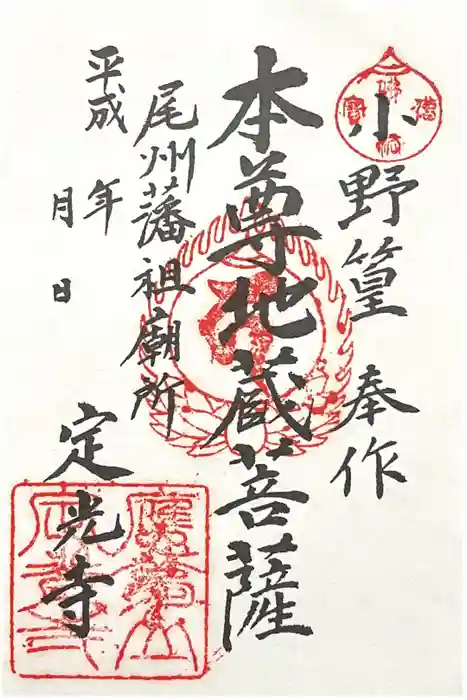 小野篁 奉作
本尊地蔵菩薩
尾州藩祖廟所
平成 年
月 日
定光寺